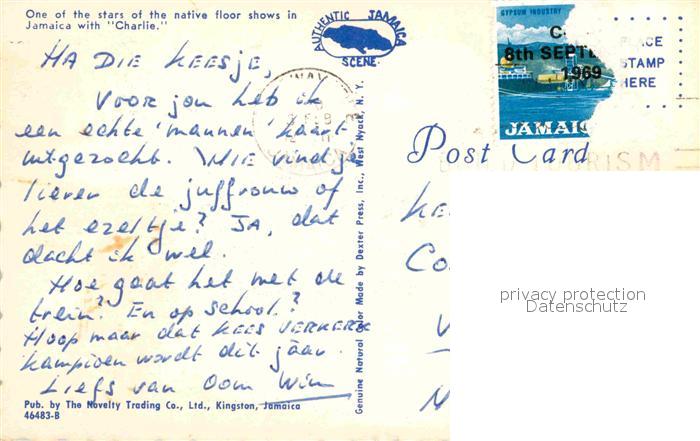 One of the stars of the native floor shows in
Jamaica with "Charlie."
AUTHENTIC JAMAICA
SCENE
GYPSUM INDUSTRY
8th SEPTE
1969
JAMAIC
PLACE
STAMP
HERE
HA DIE KEESJE,
Voor jou heb ik
een echte 'mannen' kaart
uitgezocht. WIE vind je
liever de juffrouw of
het ezeltje? JA, dat
dacht ik wel.
Hoe gaat het met de
trein? En op school?
Hoop maar dat KEES VERKERK
kampioen wordt dit jaar.
Liefs van Oom Wim
Post Card
TOURISM
KE
Co
V
N
privacy protection
Datenschutz
Genuine Natural Color Made by Dexter Press, Inc., West Nyack, N. Y.
Pub. by The Novelty Trading Co., Ltd., Kingston, Jamaica
46483-B